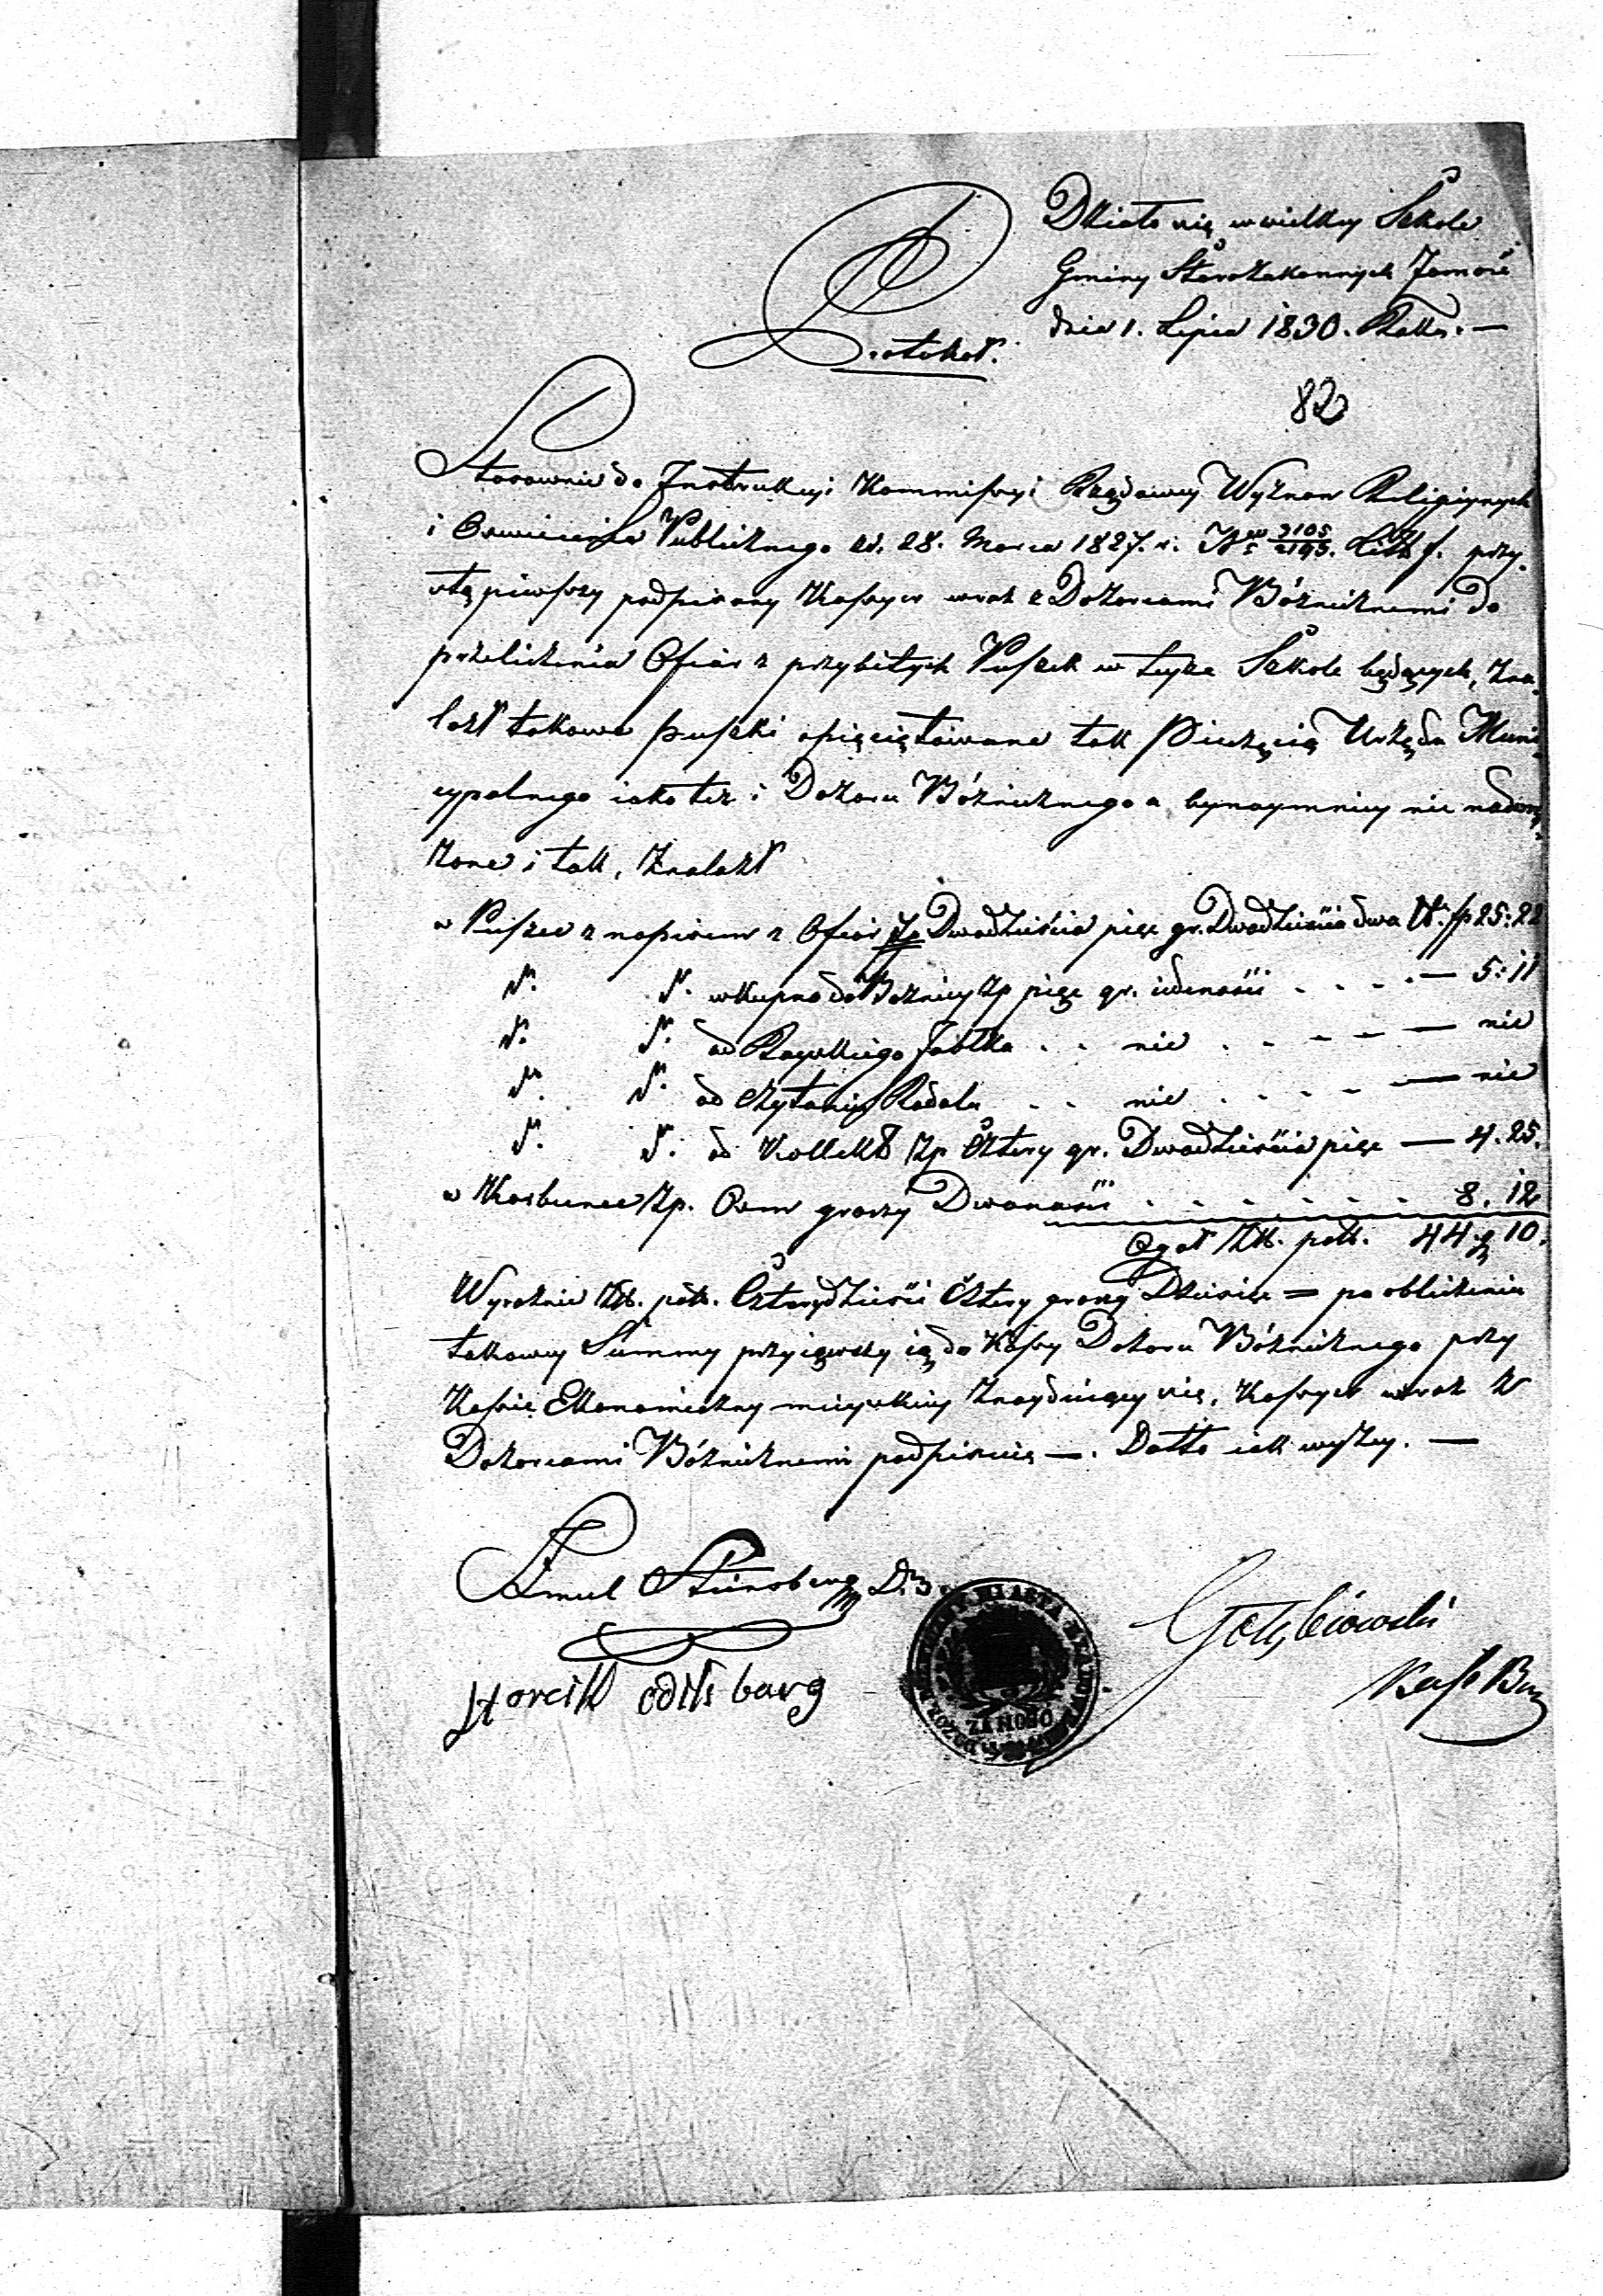 Działo się w wielkiey Szkole
Gminy Starozakonnych Zamość
dnia 1. Lipca 1830. Roku. —
Protokół.
82
Stosownie do Instrukcyi Kommissyi Rządowey Wyznań Religiynych
i Oswiecenia Publicznego dd. 28. Marca 1827. r. przy-
stąpiwszy podpisany Kassyer wraz z Dozorcami Bóźnicznemi do
przeliczenia Ofiar z przybitych Puszek w teyże Szkole będących, zna-
lazł takowe puszki opięciętowane tak Pieczęcią Urzędu Muni-
cypalnego iako też i Dozoru Bóźnicznego a bynaymniey nie nadwerę-
żone i tak, Znalazł
w Puszce z napisem z Ofiar Zp Dwadzieścia pięć gr. Dwadzieścia dwa Zł. p 25:22
d. d. wkupno do Boznicy Zp pięć gr. iedenaści . . . . — 5:11
d. d. od Rayskiego Jabłka . . nic . . - - — nic
d. d. od czytania Rodału . . nic . . . - — nic
d. d. od Kollekt Zp Cztery gr. Dwadzieścia pięć — 4.25.
w Karbunce Zp. Osm groszy Dwanaści . . . . . . . 8. 12
Ogół Złt. pols. 44 g 10.
Wyraznie Złt. pols. Czterydzieści Cztery groszy Dziesięć = po obliczeniu
takowey Summy przyiąwszy ią do Kassy Dozoru Bóźnicznego przy
Kassie Ekonomiczney mieyskiey znayduiącey się, Kassyer wraz z
Dozorcami Bóźnicznemi podpisuią —. Datto iak wyżey. —
Szmul Steinsberg D. B.
Gołębiowski
Hercik edelsburg
Kass Bu
MIASTA
ZAMOŚĆ
DOZOR